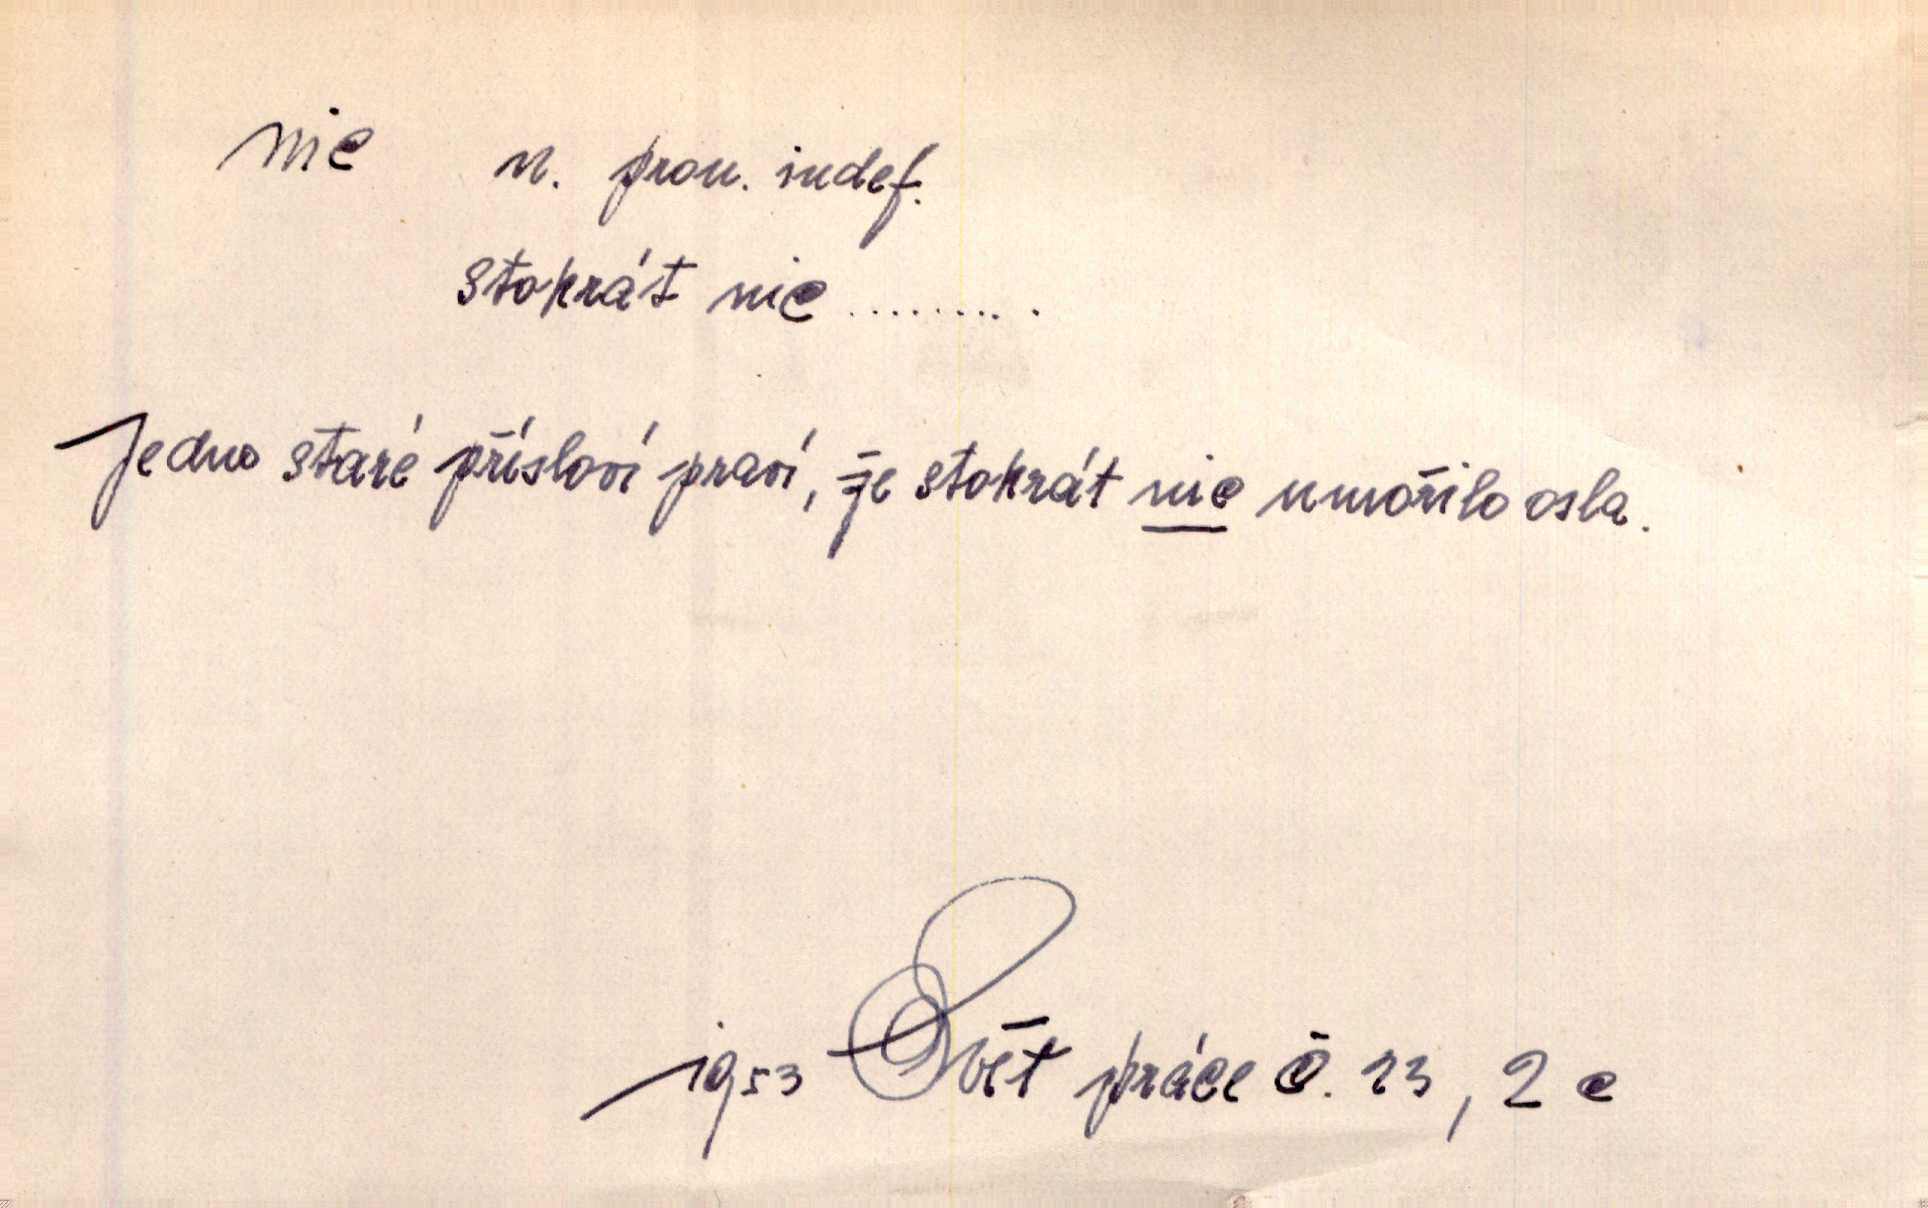 nic n. pron. indef.
stokrát nic ..........
Jedno staré přísloví praví, že stokrát nic umořilo osla.
1953 Svět práce č. 23, 2 c